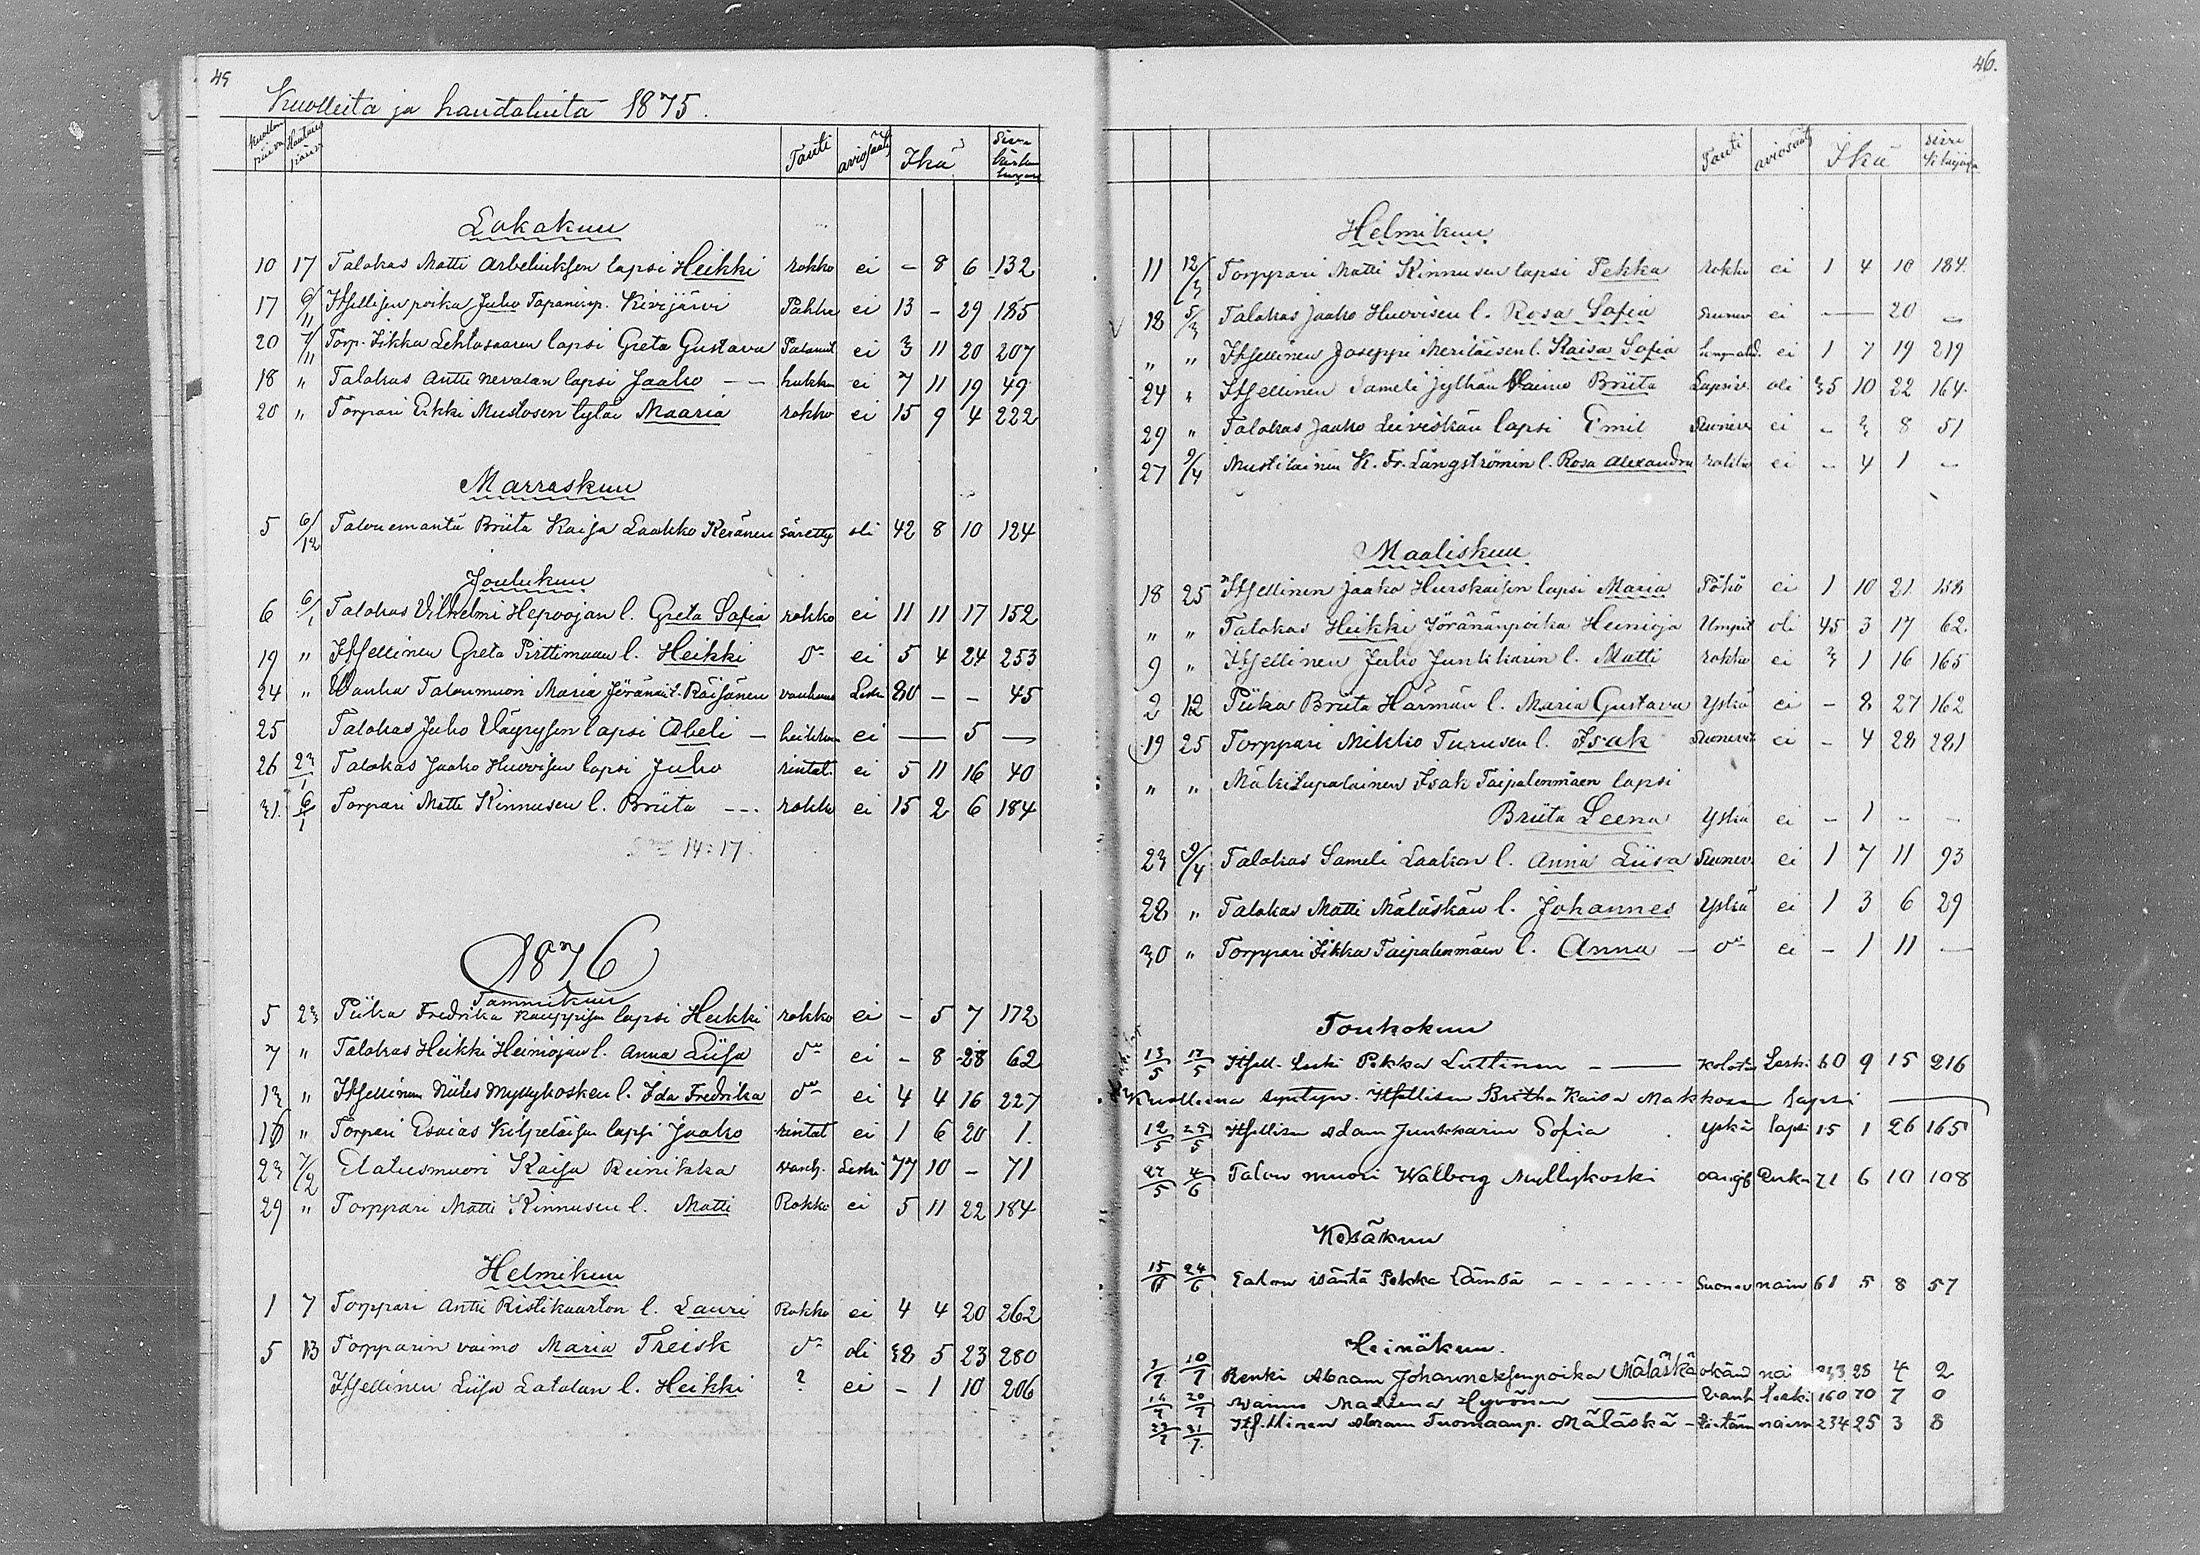 45
Kuolleita ja haudatuita 1875.
kuollon päivä Hautaus päivä Tauti aviosääty Ikä
Lokakuu
10 17 Talokas Matti Arbeliuksen lapsi Heikki rokko ei – 8 6 132
17 6/11 Itsellisen poika Juho Tapaninp. Kivijärvi ei 13 – 29 185
20 7/11 Torp. Iikka Lehtosaaren lapsi Greta Gustava ei 3 11 20 207
18 " Talokas Antti Nevalan lapsi Jaako – – ei 7 11 19 49
20 " Torpari Erkki Mustosen tytär Maaria rokko ei 15 9 4 222
Marraskuu
5 6/12 Talonemäntä Briita Kaisa Laakko Keränen oli 42 8 10 124
Joulukuu
6 6/1 Talokas Vilhelmi Hepoojan l. Greta Sofia rokko ei 11 11 17 152
19 " Itsellinen Greta Pirttimaan l. Heikki do ei 5 4 24 253
24 " Wanha Talonmuori Maria Jöränint. Räisänen vanhuus Leski 80 – – 45
25 Talokas Juho Väyrysen lapsi Abeli – ei — 5 —
26 23/1 Talokas Jaako Huovisen lapsi Juho rintat. ei 5 11 16 40
31. 6/1 Torpari Matti Kinnusen l. Briita – – – rokko ei 15 2 6 184
14 = 17.
1876
Tammikuu
5 23 Piika Fredrika Kauppisen lapsi Heikki rokko ei – 5 7 172
7 " Talokas Heikki Heiniojan l. Anna Liisa do ei – 8 28 62
13 " Itsellinen Niiles Myllykosken l. Ida Fredrika do ei 4 4 16 227
16 " Torpari Esaias Kilpeläisen lapsi Jaako rintat ei 1 6 20 1.
23 7/2 Elatusmuori Kaisa Reinikka vanh. Leski 77 10 – 71
29 " Torppari Matti Kinnusen l. Matti Rokko ei 5 11 22 184
Helmikuu
1 7 Torppari Antti Ristikaarton l. Lauri Rokko ei 4 4 20 262
5 13 Torpparin vaimo Maria Treisk do oli 38 5 23 280
Itsellinen Liisa Latolan l. Heikki ? ei – 1 10 206
46.
Tauti aviosääty Ikä
Helmikuu
11 12/3 Torppari Matti Kinnusen lapsi Pekka rokko ei 1 4 10 184.
18 5/3 Talokas Jaako Huovisen l. Rosa Sofia ei — 20 –
" " Itsellinen Joseppi Meriläisen l. Kaisa Sofia ei 1 7 19 219
24 " Itsellinen Sameli Jylhän Vaimo Briita oli 35 10 22 164.
29 " Talokas Jaako Leiviskän lapsi Emil ei – 3 8 51
27 9/4 Mustilainen K. Fr. Långströmin l. Rosa Alexandra rokko ei – 4 1 –
Maaliskuu
18 25 Itsellinen Jaako Hurskaisen lapsi Maria Pöhö ei 1 10 21 158
" " Talokas Heikki Jöränänpoika Heinioja Umpit oli 45 3 17 62.
9 " Itsellinen Juho Junkkarin l. Matti rokko ei 3 1 16 165
2 12 Piika Briita Härmän l. Maria Gustava Yskä ei – 8 27 162
19 25 Torppari Mikko Turusen l. Isak ei – 4 28 281
" " Mäkitupalainen Isak Taipalenmäen lapsi
Briita Leena Yskä ei – 1 – –
23 9/4 Talokas Sameli Laakon l. Anna Liisa ei 1 7 11 93
28 " Talokas Matti Mäläskän l. Johannes Yskä ei 1 3 6 29
30 " Torppari Iikka Taipalenmäen l. Anna – do ei – 1 11 —
Toukokuu
13/5 17/5 Itsell. Leski Pekka Luttinen – — Leski 60 9 15 216
Kuolleena syntyn. Itsellisen Britha Kaisa Makkosen lapsi —
12/5 25/5 Itsellisen Adam Junkkarin Sofia yskä lapsi 15 1 26 165
27/5 4/6 Talon muori Walborg Myllykoski Leski 71 6 10 108
Kesäkuu
15/6 24/6 Talon isäntä Pekka Lämsä – – – – – – – nain 61 5 8 57
Heinäkuu.
1/7 10/7 Renki Abram Johanneksenpoika Mäläskä 28 4 2
14/7 20/7 Waimo Madlena Hyvönen — Vanh leski 160 70 7 0
23/7 31/7 Itsellinen Abram Tuomaanp. Mäläskä – nain 234 25 3 8